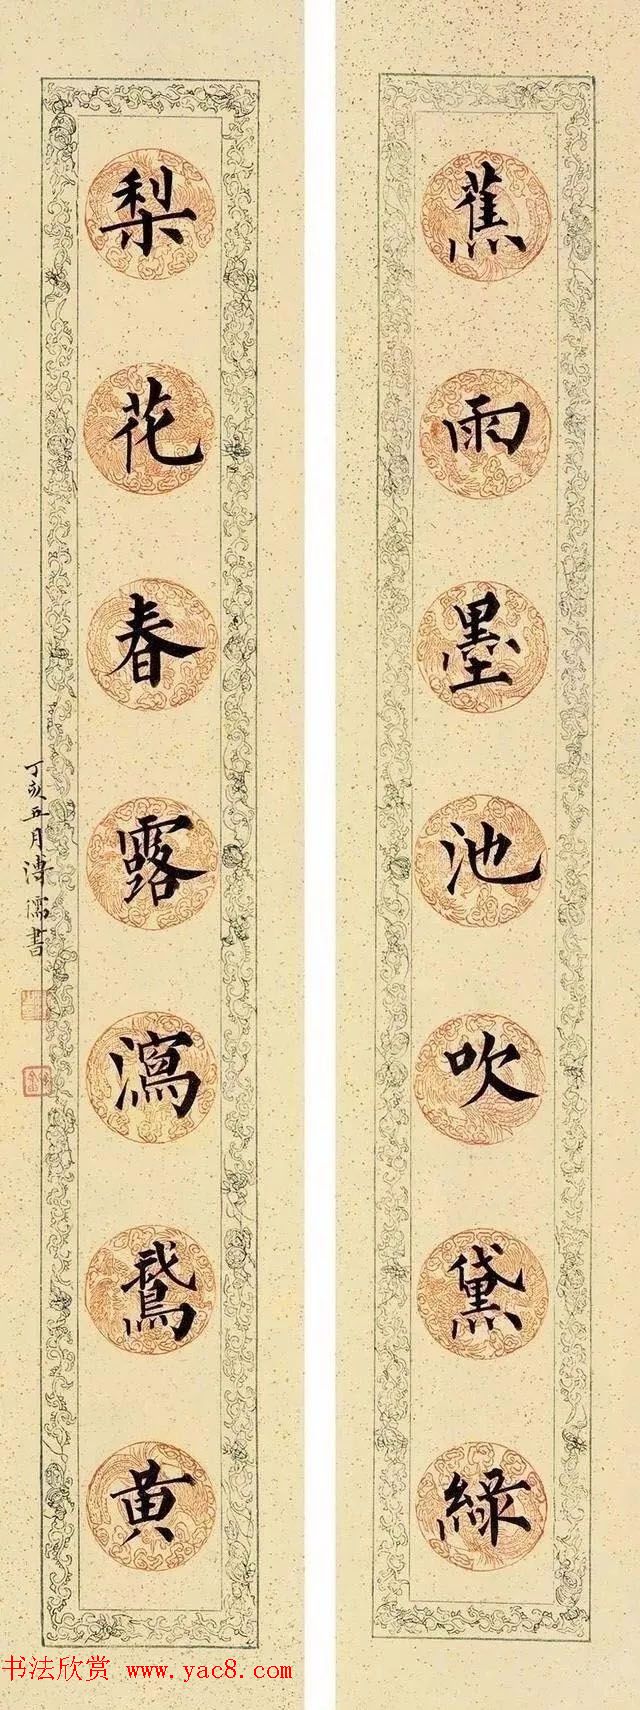 蕉雨墨池吹黛綠
梨花春露瀉鵞黄
丁亥五月溥儒書
书法欣赏 www.yac8.com